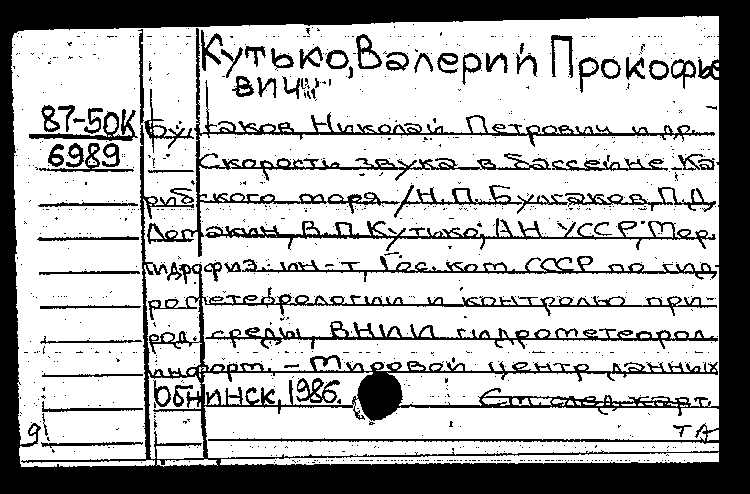 Кутько, Валерий Прокофье
вич
87-50К
6989
Булгаков, Николай Петрович и др.
Скорости звука в бассейне Ка-
рибского моря /Н.П. Булгаков, П.Д.
Ломакин, В.П. Кутько; АН УССР, Мор.
гидрофиз. ин-т, Гос. ком. СССР по гид-
рометеорологии и контролю при-
род. среды, ВНИИ гидрометеорол.
информ. – Мировой центр данных
Обнинск, 1986.
См. след. карт.
9
ТА